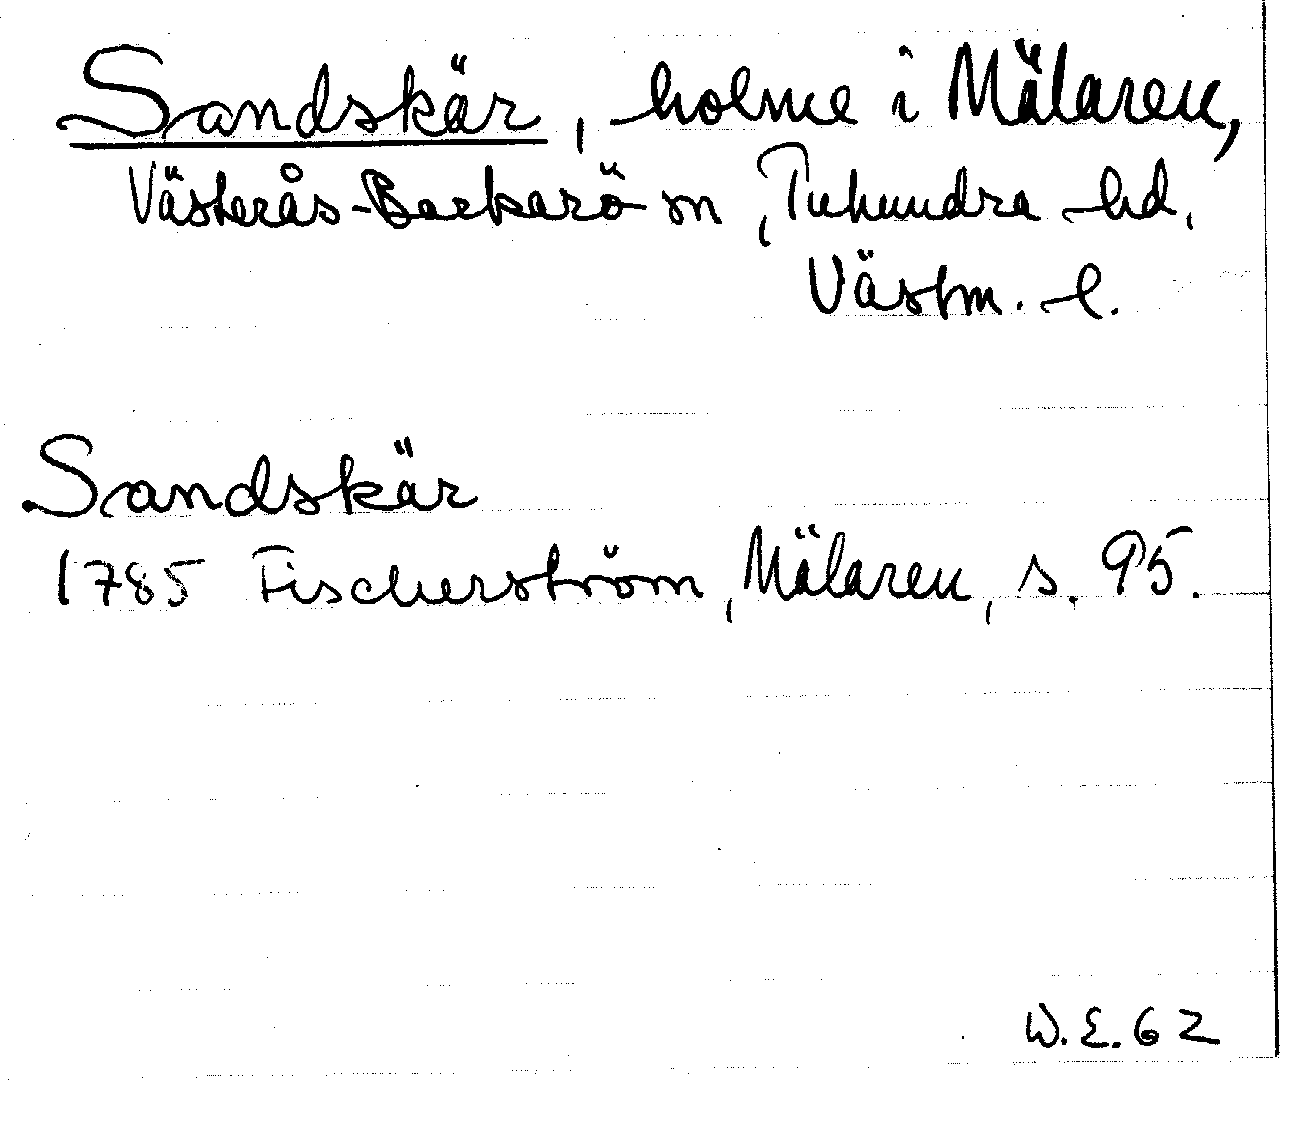 Sandskär, holme i Mälaren,
Västerås-Barkarö sn, Tuhundra hd,
Västm. l.
Sandskär
1785 Fischerström, Mälaren, s. 95.
W.E.62